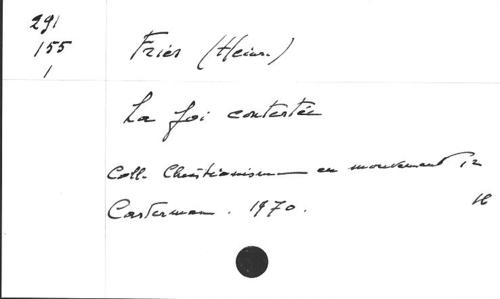 291
155
1
Fries (Heinr.)
La foi contestée
Coll. Christianisme en mouvement 12
Casterman. 1970.